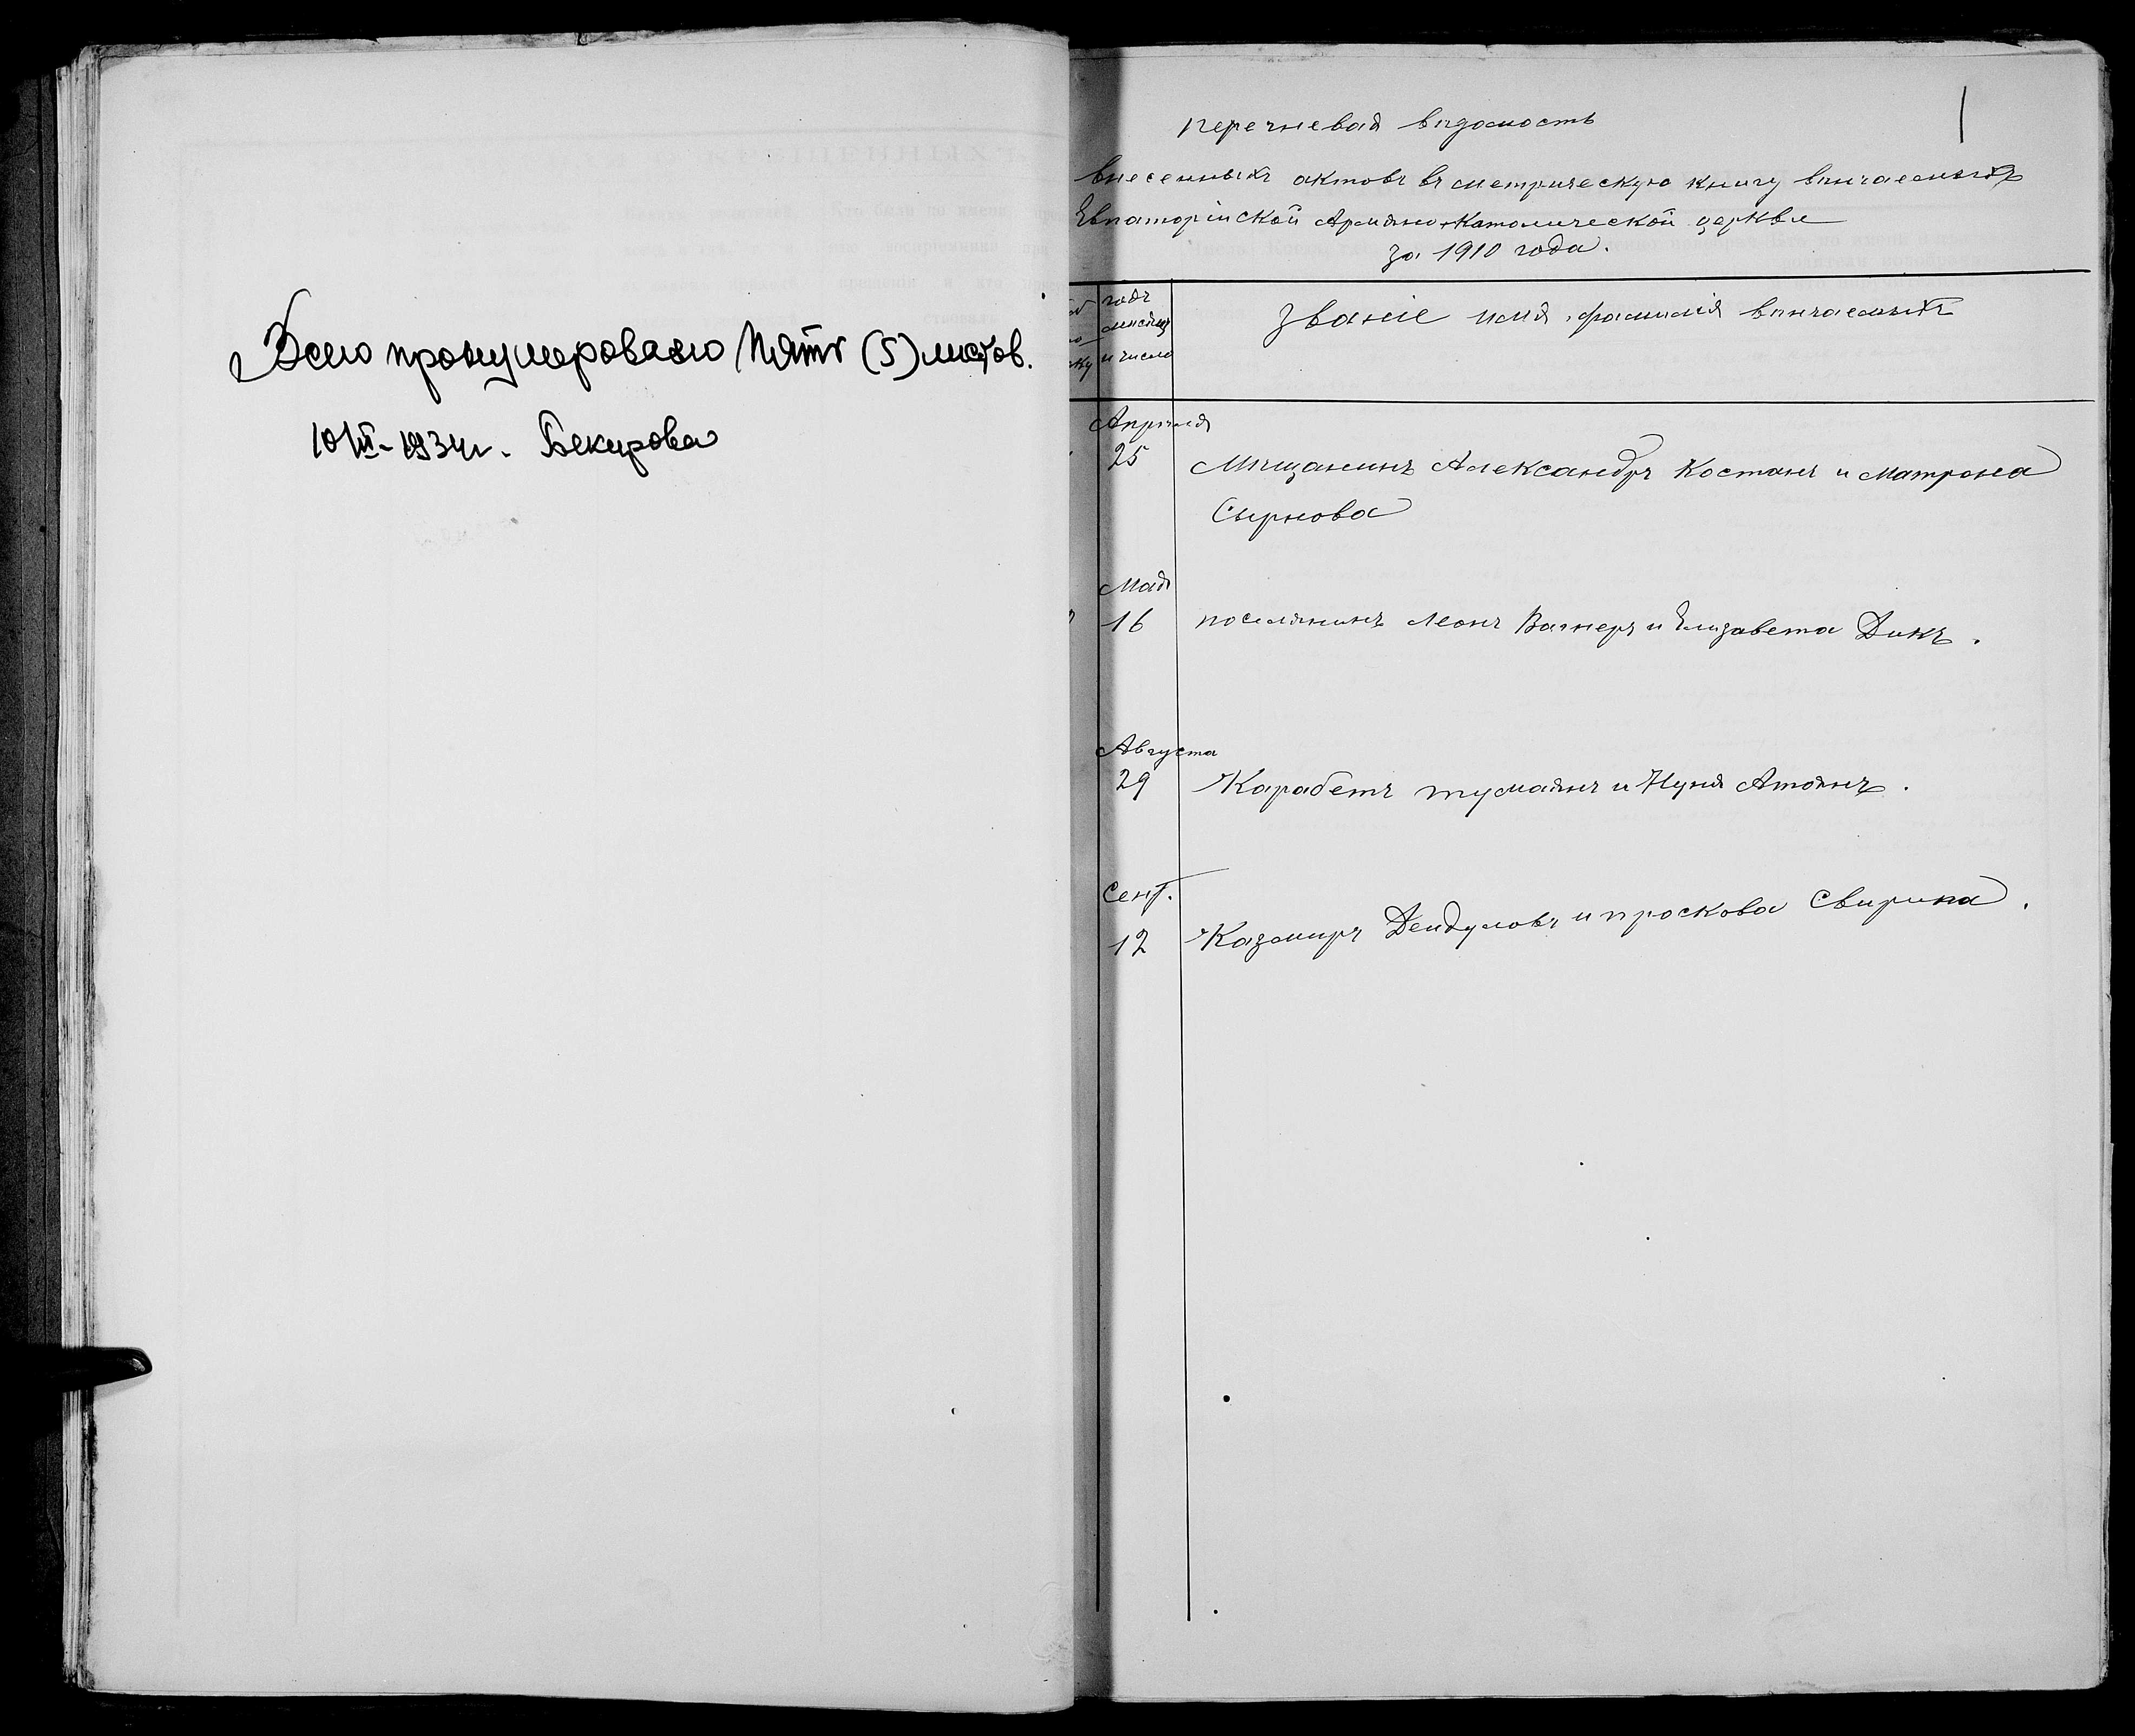 Всего пронумеровано пять (5) листов.
10/III-1934г. Бекирова
1
Перечневая вѣдомость
внесенныхъ актовъ въ метрическую книгу вѣнчаемыхъ
Евпаторійской Армяно-Католической церкви
за 1910 года.
годъ
мѣсяцъ
и число
Званіе имя, фамилія вѣнчаемыхъ
Апрѣля
25 Мѣщанинъ Александръ Костанъ и Матрона
Сырнова
Мая
16 поселянинъ Леонъ Вагнеръ и Елизавета Дикъ.
Августа
29 Карабетъ Тумаянъ и Нуня Атоянъ.
Сент.
12 Казмиръ Дендуловъ и проскова Свирина.